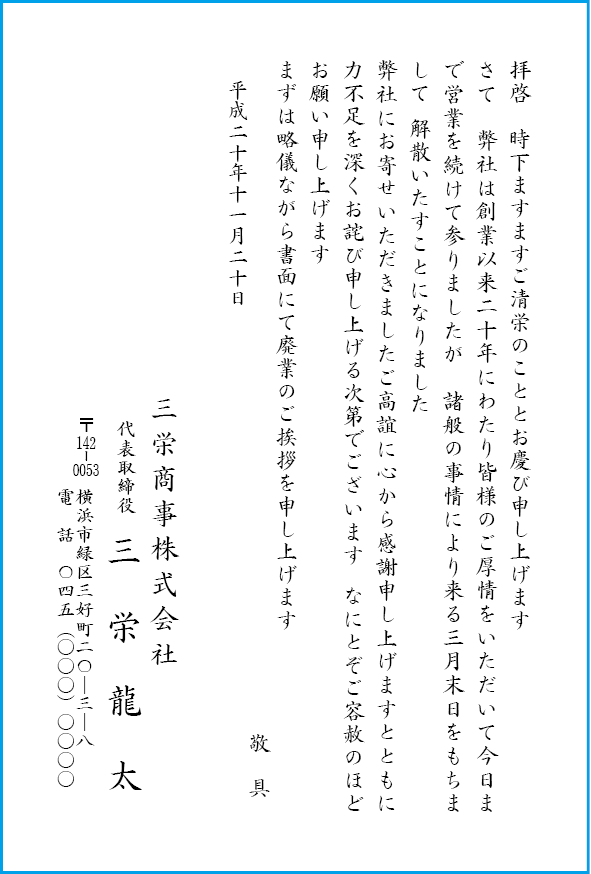 拝啓　時下ますますご清栄のこととお慶び申し上げます
さて　弊社は創業以来二十年にわたり皆様のご厚情をいただいて今日ま
で営業を続けて参りましたが　諸般の事情により来る三月末日をもちま
して 解散いたすことになりました
弊社にお寄せいただきましたご高誼に心から感謝申し上げますとともに
力不足を深くお詫び申し上げる次第でございます　なにとぞご容赦のほど
お願い申し上げます
まずは略儀ながら書面にて廃業のご挨拶を申し上げます
敬具
平成二十年十一月二十日
三栄商事株式会社
代表取締役　三栄龍太
〒142-0053　横浜市緑区三好町二〇―三―八
電話　〇四五（〇〇〇）〇〇〇〇